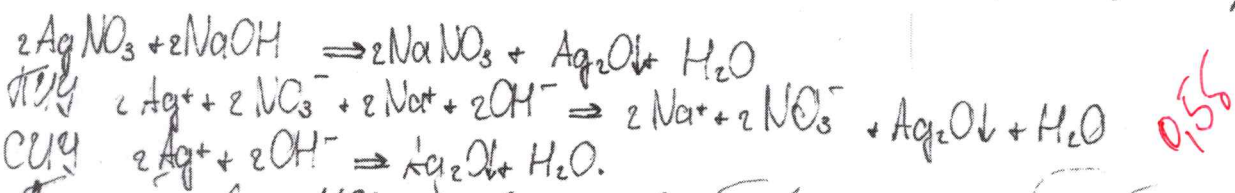 2AgNO₃ + 2NaOH ⇒ 2NaNO₃ + Ag₂O↓ + H₂O
ПИУ 2Ag⁺ + 2NO₃⁻ + 2Na⁺ + 2OH⁻ ⇒ 2Na⁺ + 2NO₃⁻ + Ag₂O↓ + H₂O 0,5б
СИУ 2Ag⁺ + 2OH⁻ ⇒ Ag₂O↓ + H₂O.